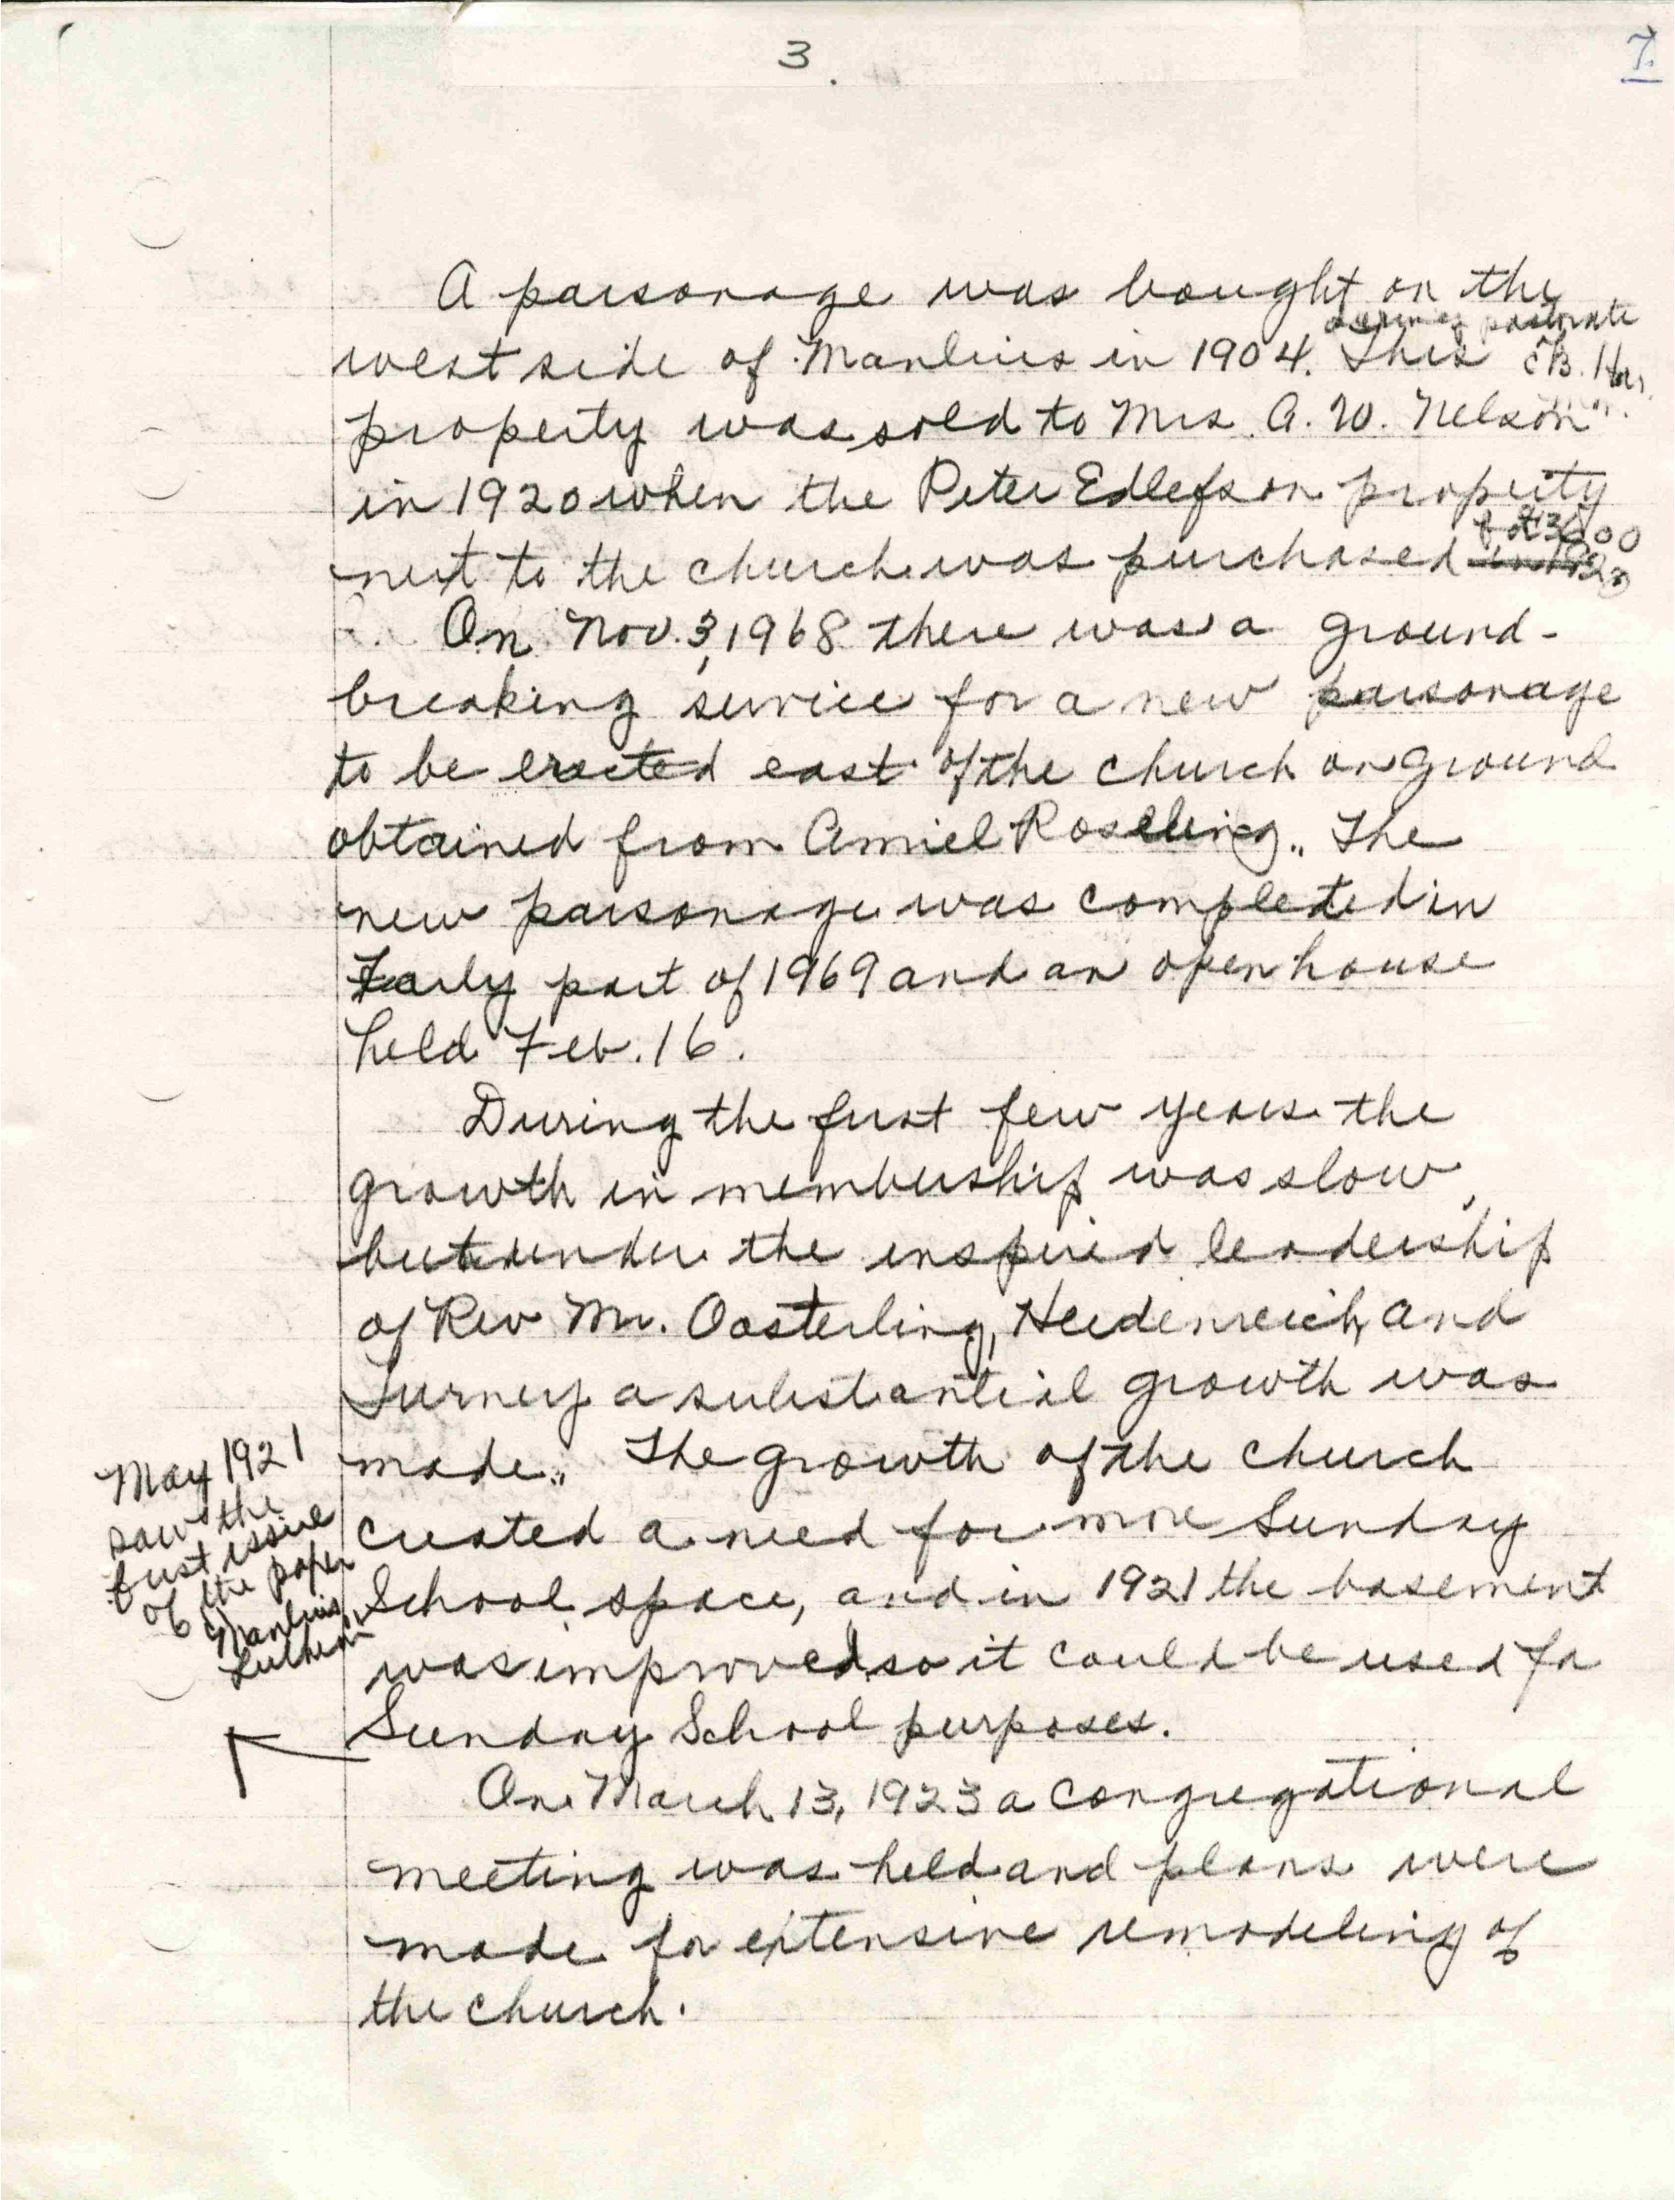 3.
7.
A parsonage was bought on the
during pastorate
west side of Manlius in 1904. This E.B. Har
property was sold to Mrs. A. W. Nelson
in 1920 when the Peter Edlefson property
for $13600
next to the church was purchased in 1920
On Nov. 3, 1968 there was a ground-
breaking service for a new parsonage
to be erected east of the church on ground
obtained from Amiel Roseling.. The
new parsonage was completed in
Early part of 1969 and an open house
held Feb. 16.
During the first few years the
growth in membership was slow,
but under the inspired leadership
of Rev Mr. Oosterling, Heidenreich, and
Turney a substantial growth was
made.. The growth of the church
created a need for more Sunday
School space, and in 1921 the basement
was improved so it could be used for
Sunday School purposes.
May 1921
saw the
first issue
of the paper
Manlius
Lutheran
On March 13, 1923 a congregational
meeting was held and plans were
made for extensive remodeling of
the church.